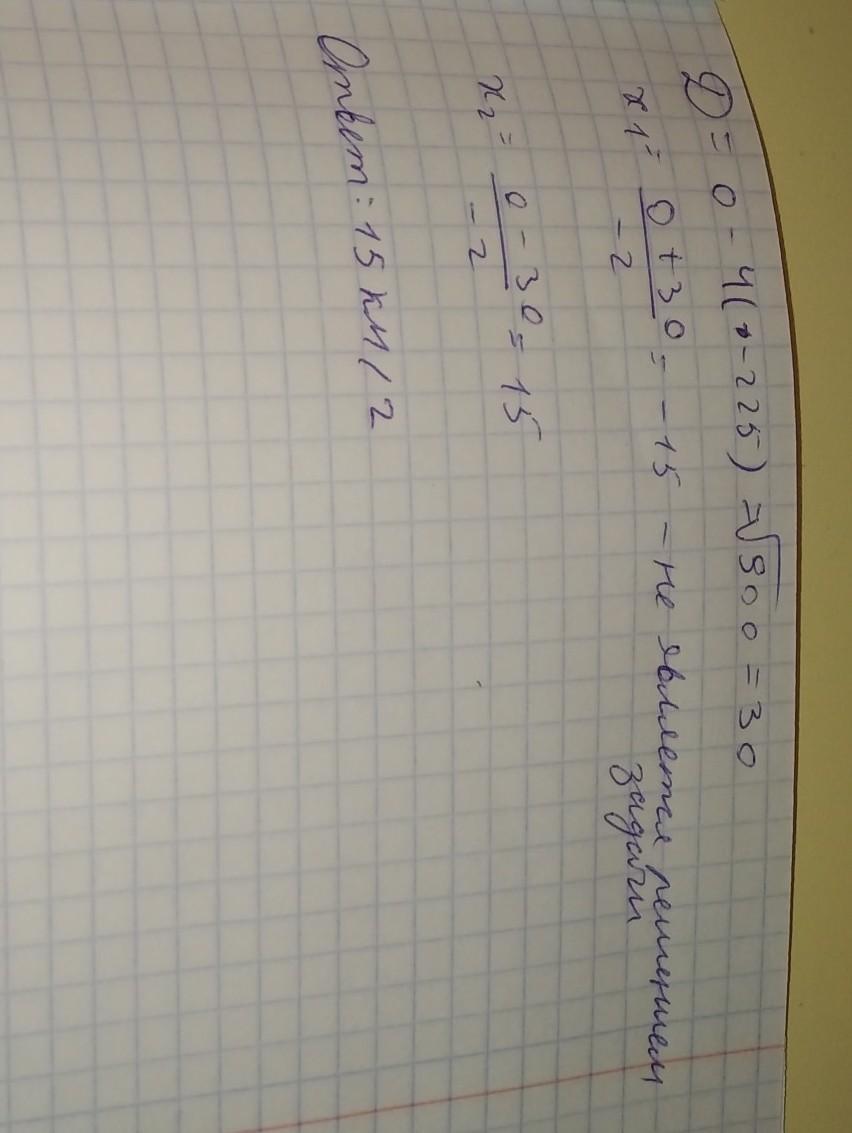 D = 0 - 4(·-225) = √900 = 30
x1 = 0 + 30 / -2 = -15 - не является решением
задачи
x2 = 0 - 30 / -2 = 15
Ответ: 15 км/г